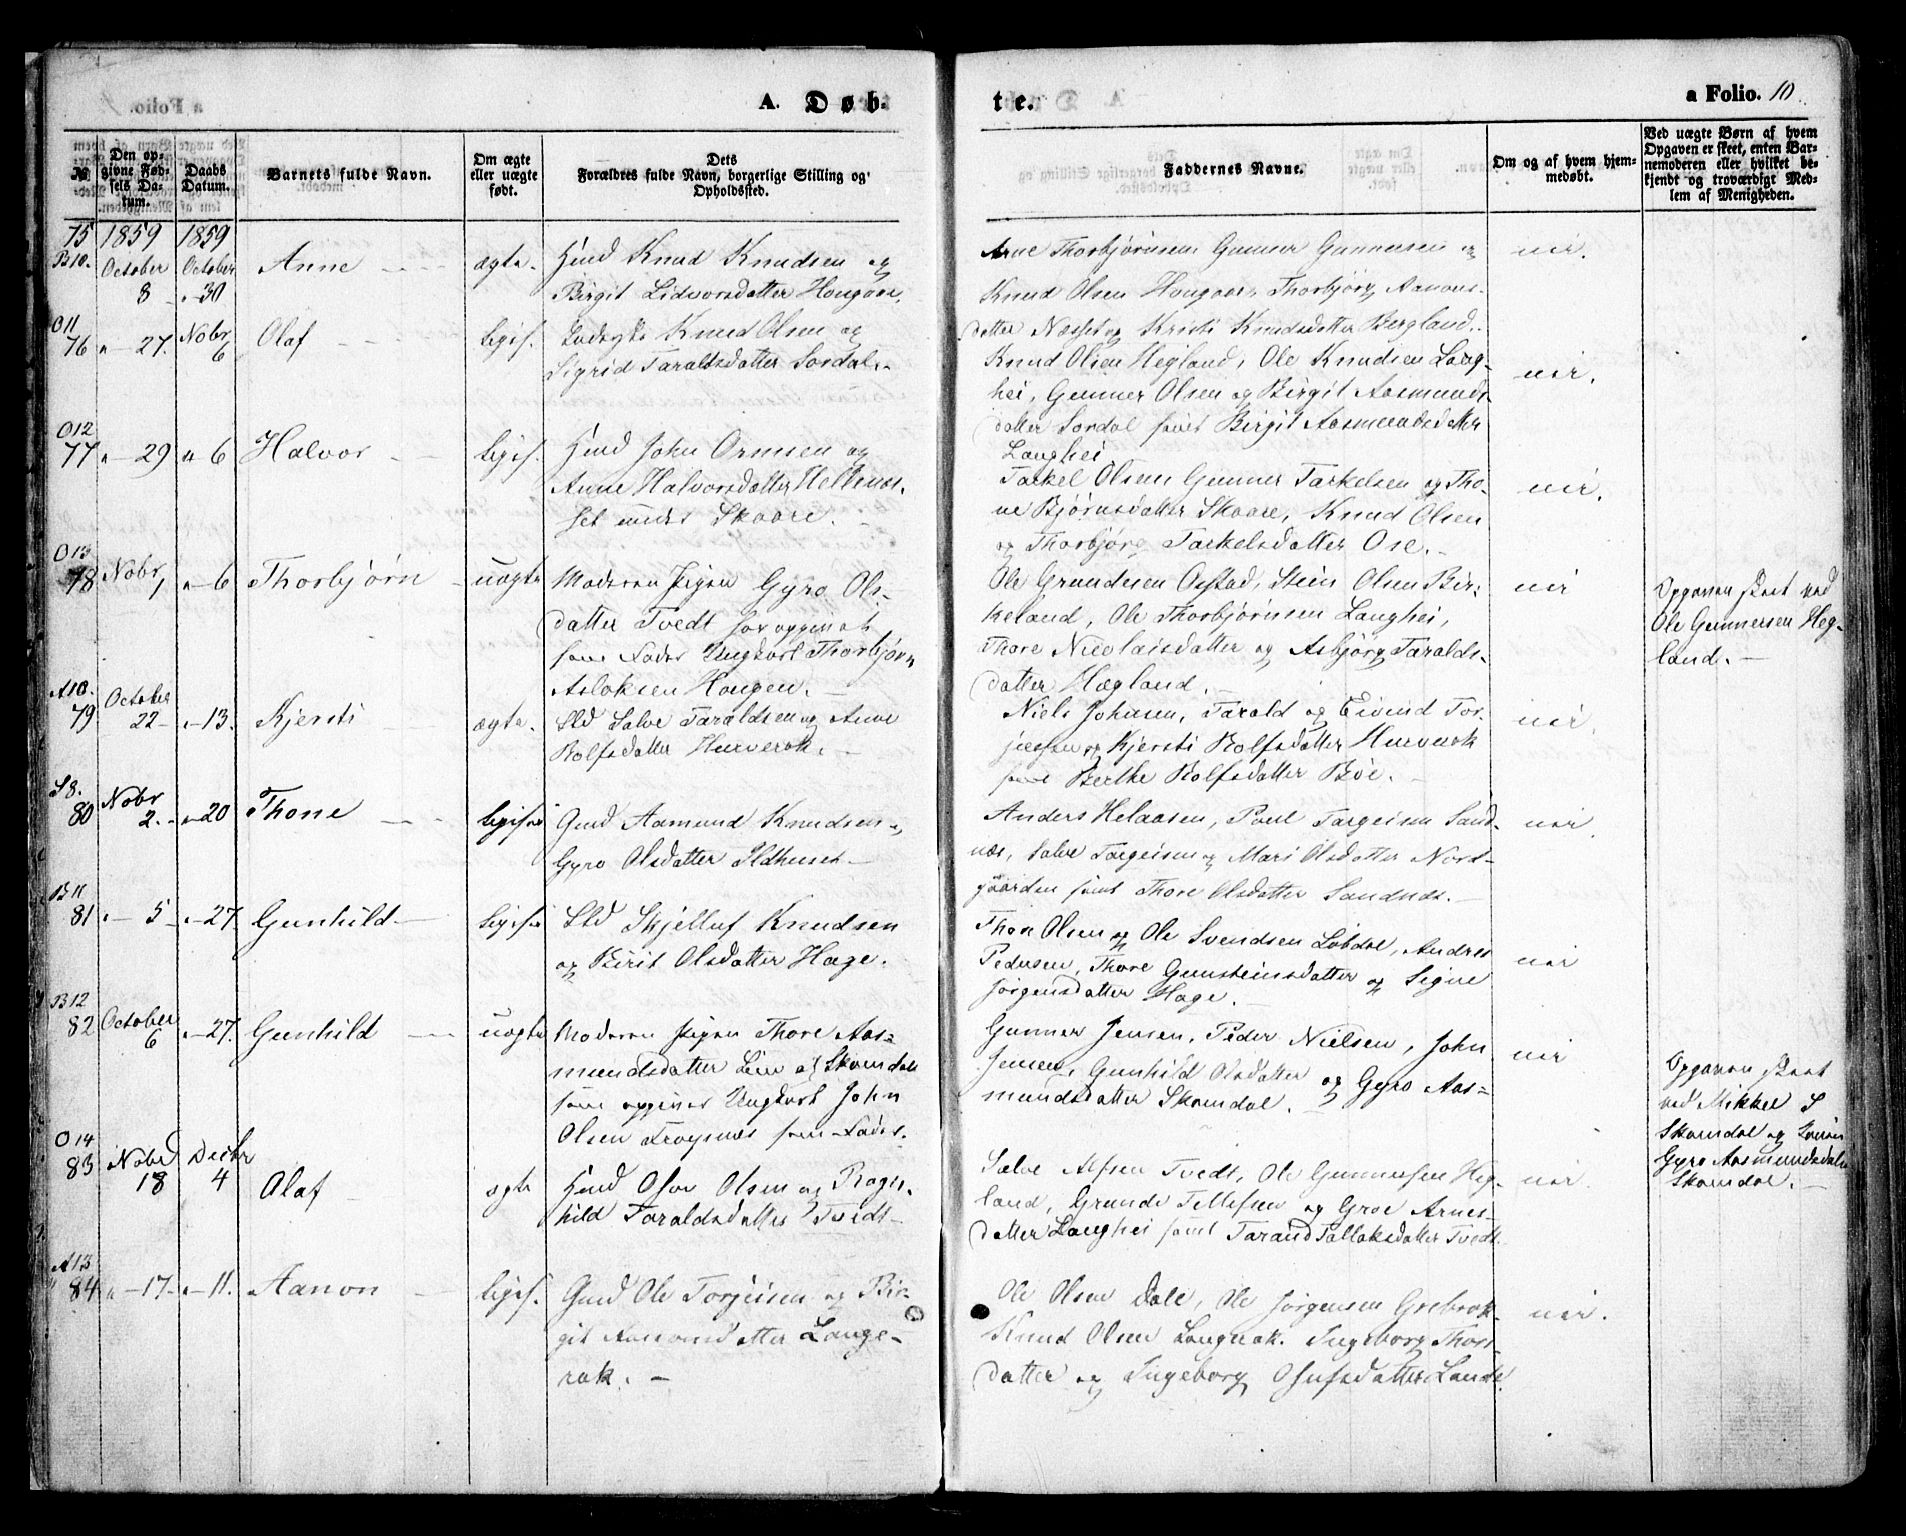 A. Døb-
te.
a Folio. 10
№
Den op-
givne Fød-
sels Da-
tum.
Daabs
Datum.
Barnets fulde Navn.
Om ægte
eller uægte
født.
Dets
Forældres fulde Navn, borgerlige Stilling og
Opholdssted.
Faddernes Navne.
Om og af hvem hjem-
medøbt.
Ved uægte Børn af hvem
Opgaven er skeet, enten Bar-
nemoderen eller hvilket be-
kjendt og troværdigt Med-
lem af Menigheden.
75 1859 1859
B10. October 8 October 30 Anne ægte.
Gmd Knud Knudsen og
Birgit Lidvorsdatter Hougaae.
Arne Thorbjørnsen Gunner Gunnersen og
Knud Olsen Hougaae, Thorbjørg Aanons-
datter Næsset og Kristi Knudsdatter Bergland.
nei.
O11
76 " 27. Nobr 6 Olaf legit.
Knud Olsen og
Sigrid Taraldsdatter Sordal.
Knud Olsen Hegland, Ole Knudsen Lang-
hei, Gunner Olsen og Birgit Aasmunds-
datter Sordal samt Birgit Aasmundsdatter
Langhei.
nei.
O12
77 " 29 " 6 Halvor legit.
Gmd John Ormsen og
Anne Halvorsdatter Hellenes-
set under Skaare.
Tarkel Olsen Gunner Tarkelsen og Tho-
ne Bjørnsdatter Skaare, Knud Olsen
og Thorbjørg Tarkelsdatter Ose.
nei.
O13
78 Nobr 1 " 6 Thorbjørn uægte
Moderen Pigen Gyro Ols-
datter Tvedt har opgivet
som Fader Ungkarl Thorbjørn
Aslaksen Hougen.
Ole Grundesen Ostad, Stein Olsen Bir-
keland, Ole Thorbjørnsen Langhei,
Thore Nicolaisdatter og Asbjørg Taralds-
datter Hægland.
nei
Opgaven skeet ved
Ole Gunnersen Heg-
land.
A10.
79 October 22 " 13. Kjersti ægte.
Lld Salve Taraldsen og Anne
Rolfsdatter Hurverak.
Niels Johnsen, Tarald og Eivind Tor-
jussen og Kjersti Rolfsdatter Hurverak
samt Berthe Rolfsdatter Bøe.
nei.
S8.
80 Nobr 2. " 20 Thone legit
Gmd Aamund Knudsen,
Gyro Olsdatter Ildhuset
Anders Helaasen, Poul Targeisen Sand-
næs, Salve Targeisen og Mari Olsdatter Nord-
gaarden samt Thore Olsdatter Sandnæs.
nei.
B11
81 " 5 " 27. Gunhild legit
Lld Skjelluf Knudsen
og Birit Olsdatter Hage.
Thor Olsen og Ole Svendsen Løbdal, Andres
Pedersen, Thore Gunsteinsdatter og Signe
Jørgensdatter Hage.
nei
B12
82 October 6 " 27. Gunhild uægte
Moderen Pigen Thore Aas-
mundsdatter Lien af Skomdal
som opgiver Ungkarl John
Olsen Frøysnes som Fader.
Gunner Jensen, Peder Nielsen, John
Jensen, Gunhild Olsdatter og Gyro Aas-
mundsdatter Skomdal.
nei
Opgaven skeet
ved Mikkel S
Skomdal og
Gyro Aasmundsdatter
Skomdal.
O14
83 Nobr 18 Decbr 4 Olaf ægte
Gmd Osov Olsen og Ragn-
hild Taraldsdatter Tvedt
Salve Alfsen Tvedt, Ole Gunnersen Heg-
land, Grunde Tellefsen og Groe Arnes-
datter Langhei samt Tarand Tallaksdatter Tvedt.
nei.
A13
84 " 17 " 11. Aanon legit.
Gmd Ole Torjeisen og Bir-
git Aanonsdatter Lange-
rak.
Ole Olsen Dale, Ole Jørgensen Grebrok
Knud Olsen Langerak. Ingeborg Thors-
datter og Ingeborg Osufsdatter Lande
nei.